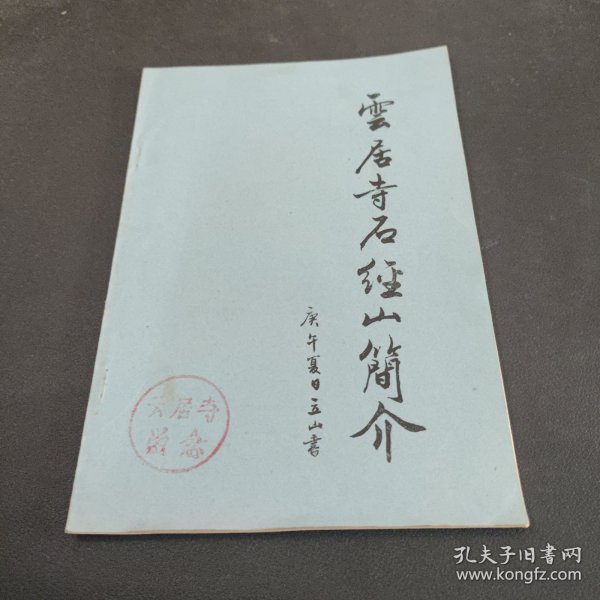 雲居寺石經山簡介
庚午夏日立山書
云居寺
留念
孔夫子旧书网
www.kongfz.com